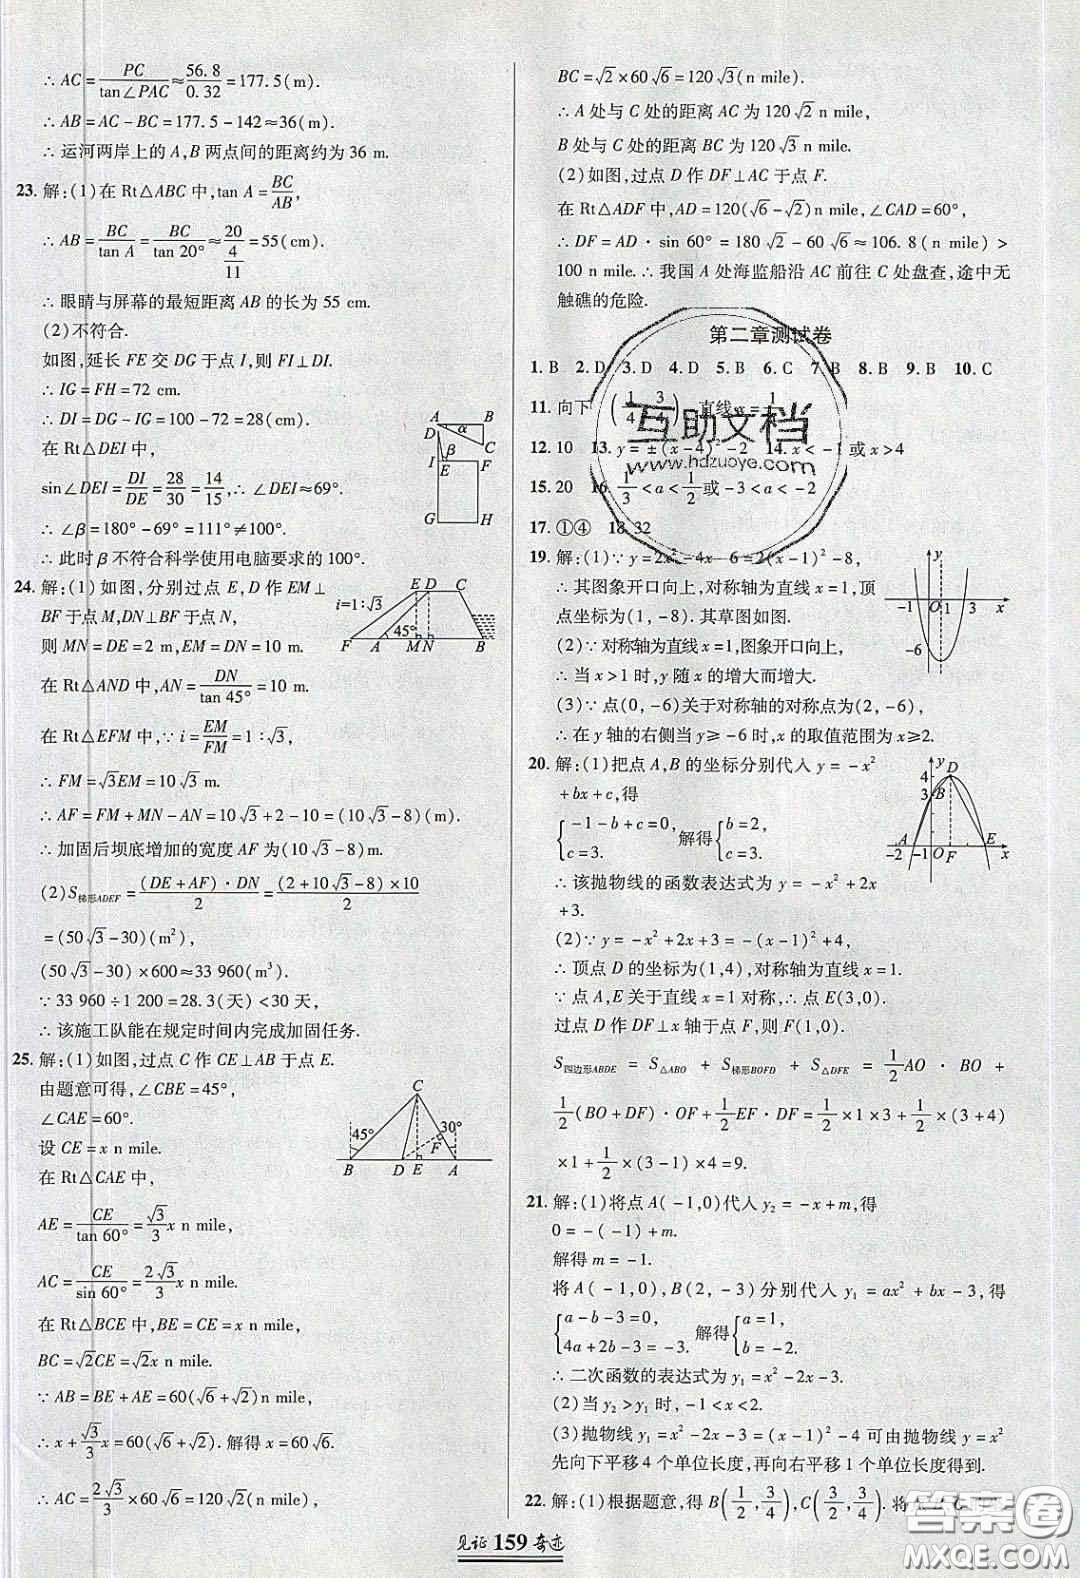 ∴ AC = PC/tan∠PAC ≈ 56.8/0.32 = 177.5(m).
∴ AB = AC - BC = 177.5 - 142 ≈ 36(m).
∴ 运河两岸上的 A,B 两点间的距离约为 36 m.
23. 解:(1)在 Rt△ABC 中,tan A = BC/AB,
∴ AB = BC/tan A = BC/tan 20° ≈ 20/(4/11) = 55(cm).
∴ 眼睛与屏幕的最短距离 AB 的长为 55 cm.
(2)不符合.
如图,延长 FE 交 DG 于点 I,则 FI⊥DI.
∴ IG = FH = 72 cm.
∴ DI = DG - IG = 100 - 72 = 28(cm).
在 Rt△DEI 中,
sin∠DEI = DI/DE = 28/30 = 14/15, ∴ ∠DEI≈69°.
∴ ∠β = 180° - 69° = 111° ≠ 100°.
∴ 此时 β 不符合科学使用电脑要求的 100°.
A B α C D β I E F G H
24. 解:(1)如图,分别过点 E,D 作 EM⊥
BF 于点 M,DN⊥BF 于点 N,
则 MN = DE = 2 m,EM = DN = 10 m.
在 Rt△AND 中,AN = DN/tan 45° = 10 m.
在 Rt△EFM 中,∵ i = EM/FM = 1∶√3,
∴ FM = √3EM = 10√3 m.
∴ AF = FM + MN - AN = 10√3 + 2 - 10 = (10√3 - 8)(m).
∴ 加固后坝底增加的宽度 AF 为(10√3 - 8)m.
(2)S梯形ADEF = (DE + AF)·DN/2 = (2 + 10√3 - 8) × 10/2
= (50√3 - 30)(m²),
(50√3 - 30) × 600 ≈ 33 960(m³).
∵ 33 960 ÷ 1 200 = 28.3(天) < 30天,
∴ 该施工队能在规定时间内完成加固任务.
E D C i=1∶√3 45° F A M N B
25. 解:(1)如图,过点 C 作 CE⊥AB 于点 E.
由题意可得,∠CBE = 45°,
∠CAE = 60°.
设 CE = x n mile.
在 Rt△CAE 中,
AE = CE/tan 60° = √3/3 x n mile,
AC = CE/sin 60° = 2√3/3 x n mile.
在 Rt△BCE 中,BE = CE = x n mile,
BC = √2CE = √2x n mile.
∵ AB = BE + AE = 60(√6 + √2)n mile,
∴ x + √3/3 x = 60(√6 + √2). 解得 x = 60√6.
∴ AC = 2√3/3 × 60√6 = 120√2(n mile),
C 45° 30° F B D E A
BC = √2 × 60√6 = 120√3(n mile).
∴ A 处与 C 处的距离 AC 为 120√2 n mile,
B 处与 C 处的距离 BC 为 120√3 n mile.
(2)如图,过点 D 作 DF⊥AC 于点 F.
在 Rt△ADF 中,AD = 120(√6 - √2)n mile,∠CAD = 60°,
∴ DF = AD · sin 60° = 180√2 - 60√6 ≈ 106.8(n mile) >
100 n mile. ∴ 我国 A 处海监船沿 AC 前往 C 处盘查,途中无
触礁的危险.
第二章测试卷
1. B 2. D 3. D 4. D 5. B 6. C 7. B 8. B 9. B 10. C
11. 向下 (1/4, 3/4) 直线 x = 1/4
12. 10 13. y = ±(x-4)² - 2 14. x < -1 或 x > 4
15. 20 16. 1/3 < a < 1/2 或 -3 < a < -2
17. ①④ 18. 32
19. 解:(1)∵ y = 2x² - 4x - 6 = 2(x - 1)² - 8,
∴ 其图象开口向上,对称轴为直线 x = 1,顶
点坐标为(1, -8). 其草图如图.
(2)∵ 对称轴为直线 x = 1,图象开口向上,
∴ 当 x > 1 时,y 随 x 的增大而增大.
(3)∵ 点(0, -6)关于对称轴的对称点为(2, -6),
∴ 在 y 轴的右侧当 y ≥ -6 时,x 的取值范围为 x≥2.
y -1 O 1 3 x -6
20. 解:(1)把点 A,B 的坐标分别代入 y = -x²
+ bx + c,得
{-1 - b + c = 0, c = 3. 解得{b = 2, c = 3.
∴ 该抛物线的函数表达式为 y = -x² + 2x
+ 3.
(2)∵ y = -x² + 2x + 3 = -(x - 1)² + 4,
∴ 顶点 D 的坐标为(1,4),对称轴为直线 x = 1.
∵ 点 A,E 关于直线 x = 1 对称,∴ 点 E(3,0).
过点 D 作 DF⊥x 轴于点 F,则 F(1,0).
S四边形ABDE = S△ABO + S梯形BOFD + S△DFE = 1/2 AO · BO +
1/2(BO + DF) · OF + 1/2 EF · DF = 1/2 × 1 × 3 + 1/2 × (3 + 4)
× 1 + 1/2 × (3 - 1) × 4 = 9.
y 4 D 3 B A E -2 -1 O F x
21. 解:(1)将点 A(-1,0)代入 y₂ = -x + m,得
0 = -(-1) + m.
解得 m = -1.
将 A(-1,0),B(2, -3)分别代入 y₁ = ax² + bx - 3,得
{a - b - 3 = 0, 4a + 2b - 3 = -3. 解得{a = 1, b = -2.
∴ 二次函数的表达式为 y₁ = x² - 2x - 3.
(2)当 y₂ > y₁ 时, -1 < x < 2.
(3)抛物线 y₁ = x² - 2x - 3 = (x - 1)² - 4 可由抛物线 y = x²
先向下平移 4 个单位长度,再向右平移 1 个单位长度得到.
22. 解:(1)根据题意,得 B(1/2, 3/4),C(3/2, 3/4). 将
见证 159 奇迹
互助文档
www.hdzuoye.com
答案圈
MXQE.COM